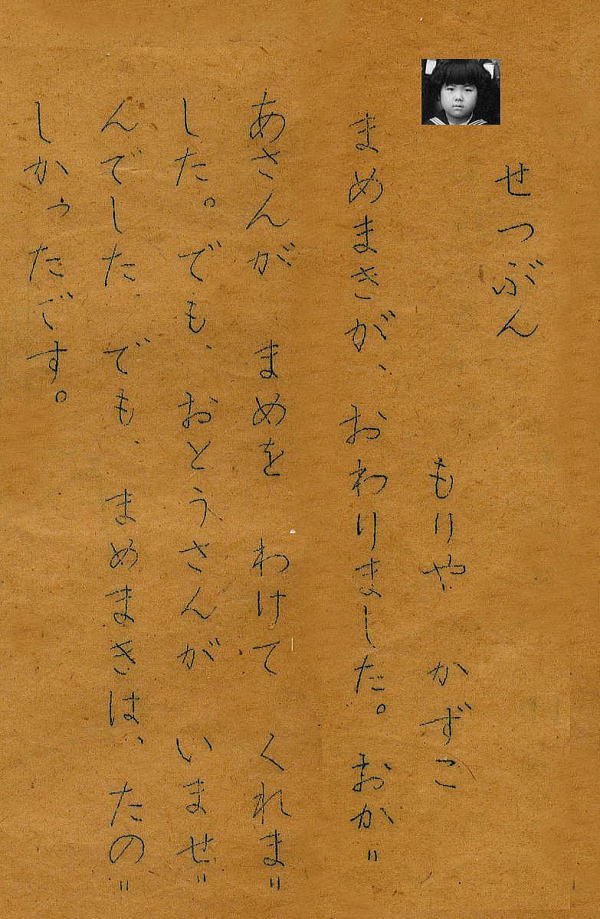 せつぶん
もりや かずこ
まめまきが、おわりました。おか〃
あさんが まめを わけて くれま〃
した。でも、おとうさんが いませ〃
んでした、でも、まめまきは、たの〃
しかったです。